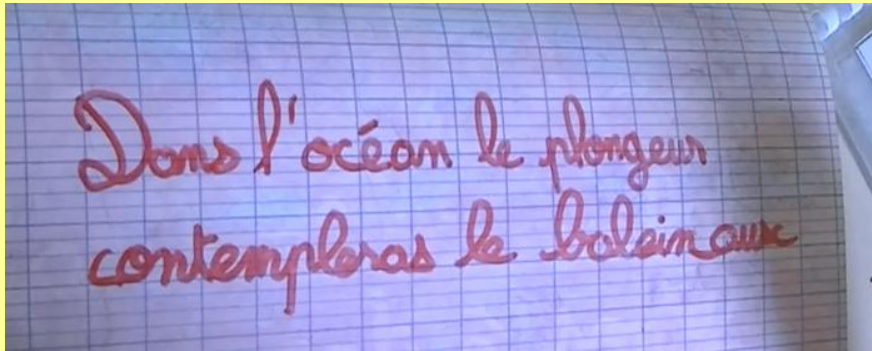 Dans l'océan le plongeur
contempleras le baleinaux